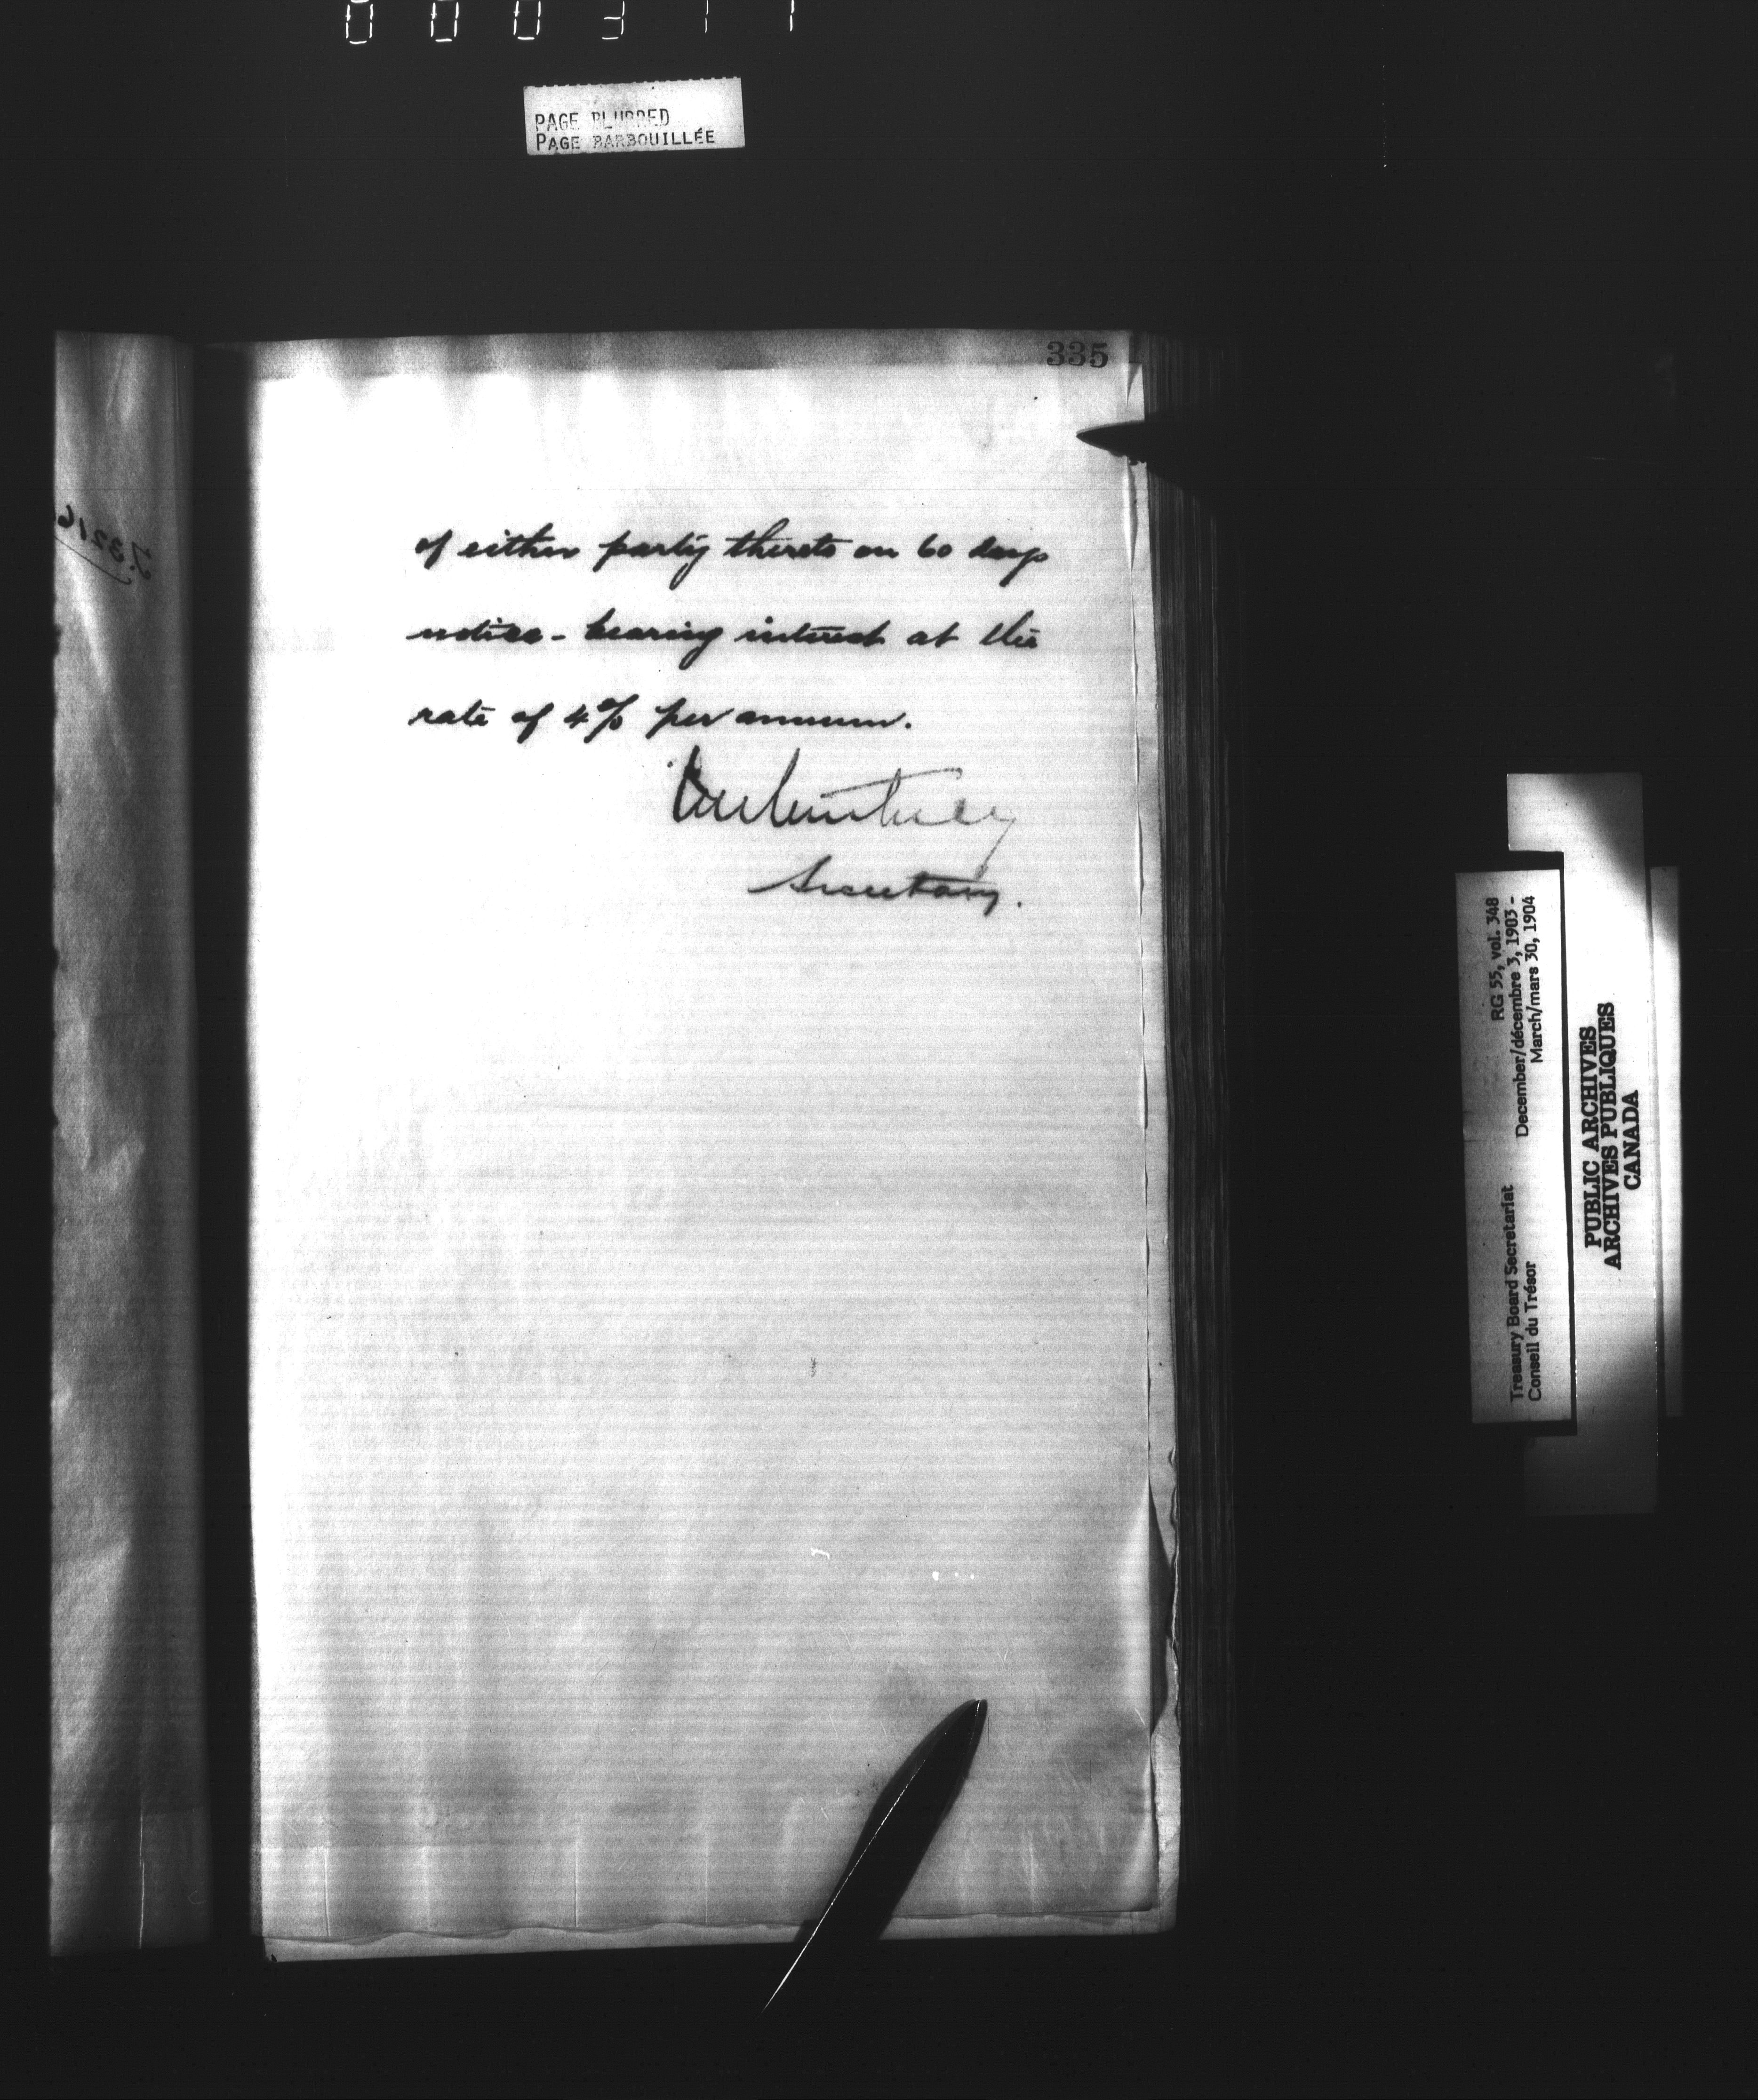 000311
PAGE BLURRED
PAGE BARBOUILLÉE
335
of either party thereto on 60 days
notice - bearing interest at the
rate of 4% per annum.
Secretary.
RG 55, vol. 348
December/décembre 3, 1903 -
March/mars 30, 1904
Treasury Board Secretariat
Conseil du Trésor
PUBLIC ARCHIVES
ARCHIVES PUBLIQUES
CANADA